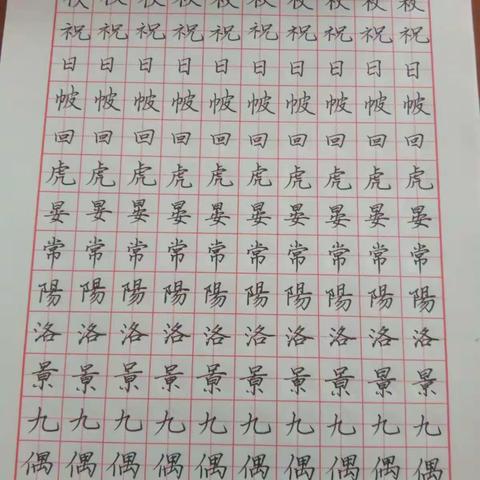 祝祝祝祝祝祝祝祝祝祝
日日日日日日日日日日
帔帔帔帔帔帔帔帔帔帔
回回回回回回回回回回
虎虎虎虎虎虎虎虎虎虎
晏晏晏晏晏晏晏晏晏晏
常常常常常常常常常常
陽陽陽陽陽陽陽陽陽陽
洛洛洛洛洛洛洛洛洛洛
景景景景景景景景景景
九九九九九九九九九九
偶偶偶偶偶偶偶偶偶偶